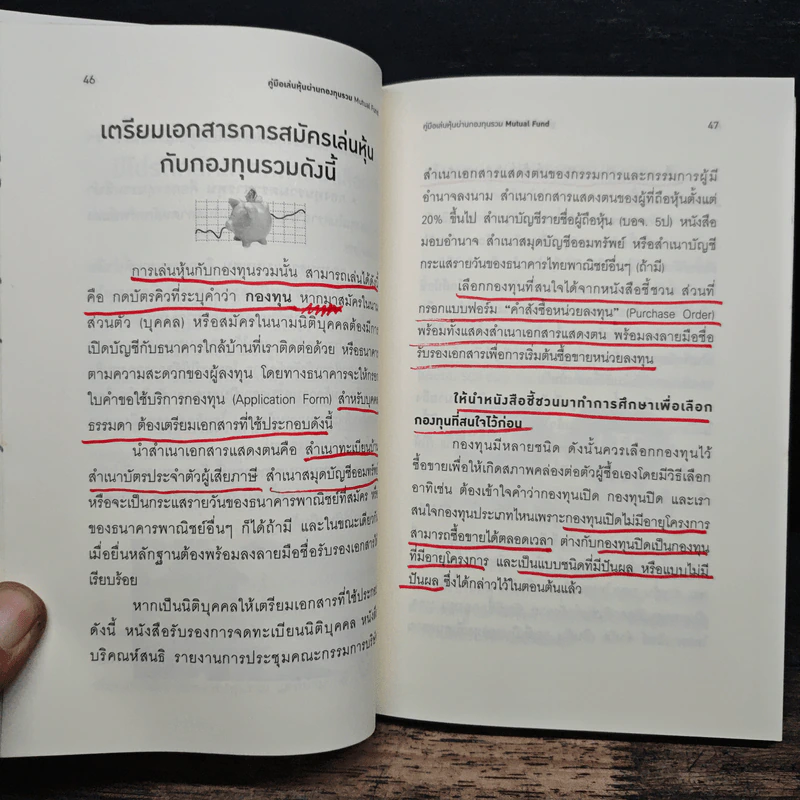 46
คู่มือเล่นหุ้นผ่านกองทุนรวม Mutual Fund
เตรียมเอกสารการสมัครเล่นหุ้น
กับกองทุนรวมดังนี้
การเล่นหุ้นกับกองทุนรวมนั้น สามารถเล่นได้ดังนี้
คือ กดบัตรคิวที่ระบุคำว่า กองทุน หากมาสมัครในนาม
ส่วนตัว (บุคคล) หรือสมัครในนามนิติบุคคลต้องมีการ
เปิดบัญชีกับธนาคารใกล้บ้านที่เราติดต่อด้วย หรือธนาคาร
ตามความสะดวกของผู้ลงทุน โดยทางธนาคารจะให้กรอก
ใบคำขอใช้บริการกองทุน (Application Form) สำหรับบุคคล
ธรรมดา ต้องเตรียมเอกสารที่ใช้ประกอบดังนี้
นำสำเนาเอกสารแสดงตนคือ สำเนาทะเบียนบ้าน
สำเนาบัตรประจำตัวผู้เสียภาษี สำเนาสมุดบัญชีออมทรัพย์
หรือจะเป็นกระแสรายวันของธนาคารพาณิชย์ที่สมัคร หรือ
ของธนาคารพาณิชย์อื่นๆ ก็ได้ถ้ามี และในขณะเดียวกัน
เมื่อยื่นหลักฐานต้องพร้อมลงลายมือชื่อรับรองเอกสารให้
เรียบร้อย
หากเป็นนิติบุคคลให้เตรียมเอกสารที่ใช้ประกอบ
ดังนี้ หนังสือรับรองการจดทะเบียนนิติบุคคล หนังสือ
บริคณห์สนธิ รายงานการประชุมคณะกรรมการบริษัท
คู่มือเล่นหุ้นผ่านกองทุนรวม Mutual Fund
47
สำเนาเอกสารแสดงตนของกรรมการและกรรมการผู้มี
อำนาจลงนาม สำเนาเอกสารแสดงตนของผู้ที่ถือหุ้นตั้งแต่
20% ขึ้นไป สำเนาบัญชีรายชื่อผู้ถือหุ้น (บอจ. 5ป) หนังสือ
มอบอำนาจ สำเนาสมุดบัญชีออมทรัพย์ หรือสำเนาบัญชี
กระแสรายวันของธนาคารไทยพาณิชย์อื่นๆ (ถ้ามี)
เลือกกองทุนที่สนใจได้จากหนังสือชี้ชวน ส่วนที่
กรอกแบบฟอร์ม “คำสั่งซื้อหน่วยลงทุน” (Purchase Order)
พร้อมทั้งแสดงสำเนาเอกสารแสดงตน พร้อมลงลายมือชื่อ
รับรองเอกสารเพื่อการเริ่มต้นซื้อขายหน่วยลงทุน
ให้นำหนังสือชี้ชวนมาทำการศึกษาเพื่อเลือก
กองทุนที่สนใจไว้ก่อน
กองทุนมีหลายชนิด ดังนั้นควรเลือกกองทุนไว้
ซื้อขายเพื่อให้เกิดสภาพคล่องต่อตัวผู้ซื้อเองโดยมีวิธีเลือก
อาทิเช่น ต้องเข้าใจคำว่ากองทุนเปิด กองทุนปิด และเรา
สนใจกองทุนประเภทไหนเพราะกองทุนเปิดไม่มีอายุโครงการ
สามารถซื้อขายได้ตลอดเวลา ต่างกับกองทุนปิดเป็นกองทุน
ที่มีอายุโครงการ และเป็นแบบชนิดที่มีปันผล หรือแบบไม่มี
ปันผล ซึ่งได้กล่าวไว้ในตอนต้นแล้ว